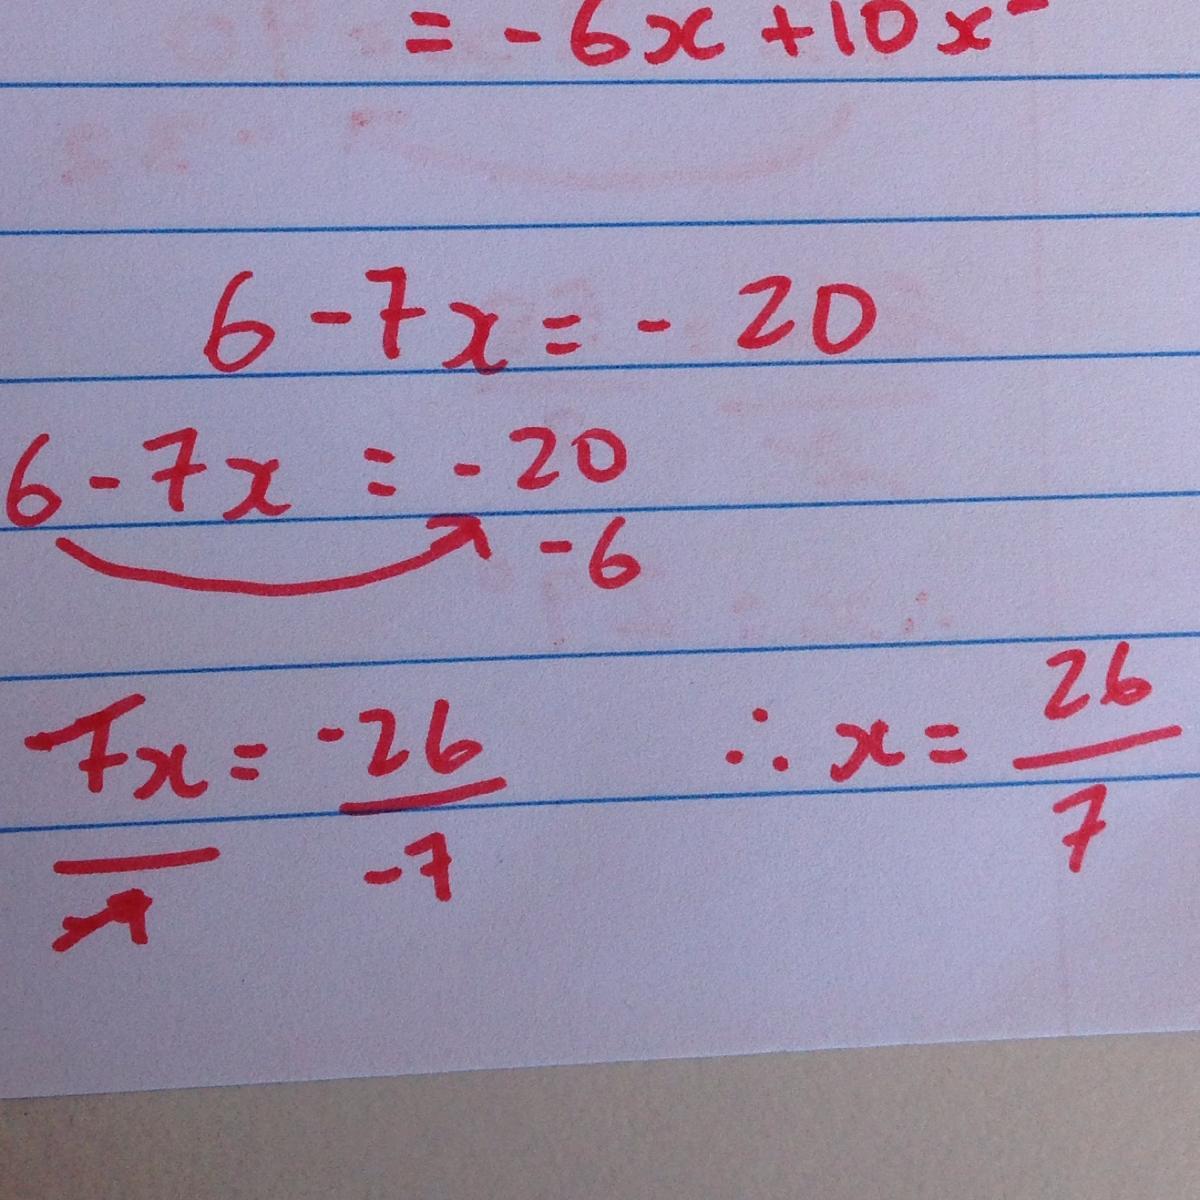 = - 6x + 10x²
6 - 7x = - 20
6 - 7x = - 20
- 6
-7x = -26 ∴ x = 26
-7 -7 7